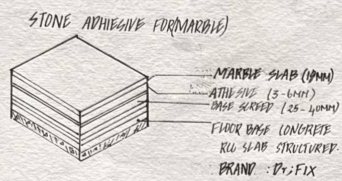 STONE ADHIESIVE FOR(MARBLE)
MARBLE SLAB (18MM)
ATHESIVE (3-6MM)
BASE SCREED (25-40MM)
FLOOR BASE CONGRETE
RCC SLAB STRUCTURED.
BRAND : Dr; FIX